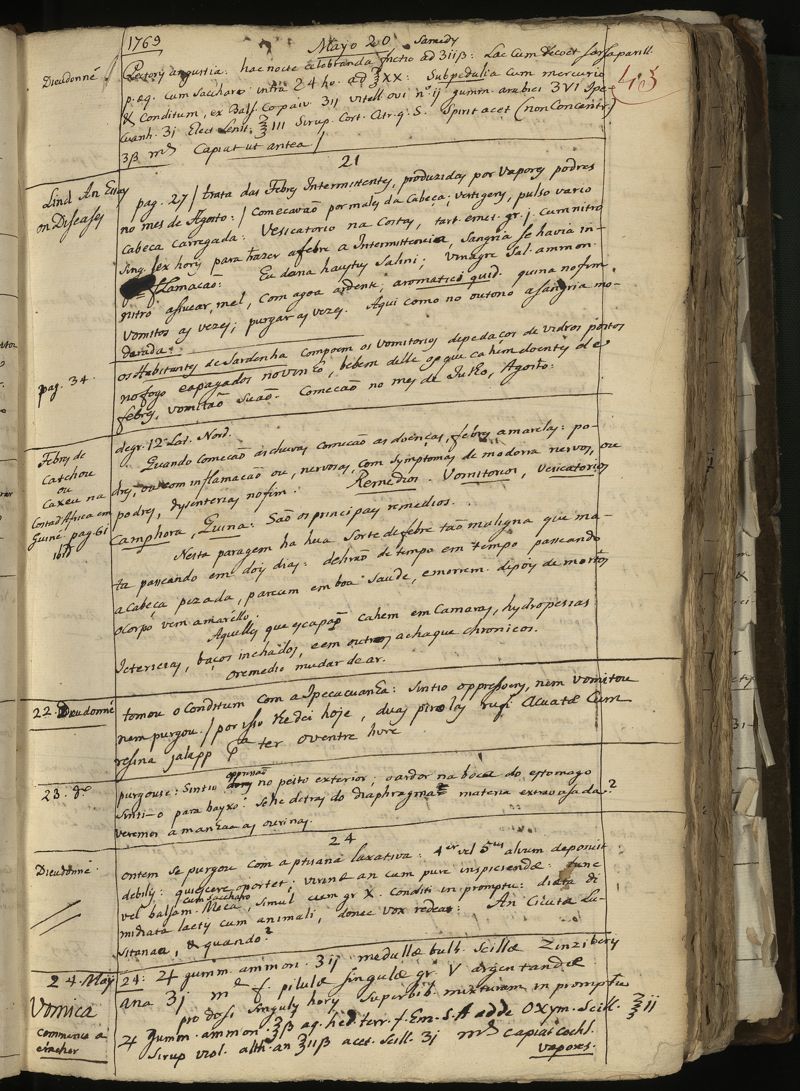 1769 Mayo 20 Samedy
43
Dieudonné. Pectory angustia: hac nocte celebranda frictio ad ʒiiβ: Lac Cum Decoct sarsaparill.
p. eq. cum saccharo intra 24 ho. ad ℥XX: Subpedulia cum mercurio
& Conditum, ex Bals. Copaiv ʒij vitell ovi nº ij gumm. arabici ʒVI Ipe=
cuanh. ʒi Elect Lenit. ℥III Sirup. Cort. Citr. q. S. Spirit acet (non Concentr)
ʒβ m Capiat ut antea /
21
Lind An Essay
on Diseases
pag. 27 / trata das Febres Intermittentes, produzidas por vapores podres
no mes de Agosto: / Comecavaõ por males da Cabeça; vertigens, pulso vario
Cabeca carregada: Vesicatorio na Costas, tart. emet. gr. j. cum nitro
sing. sex hory para trazer a febre a Intermittencia, Sangria se havia in-
flamacaõ: Eu dana haustus Salini; vinagre Sal. ammon.
nitro assucar, mel, com agoa ardente, aromatico quid. quina no fim
vomitos as vezes; purgar as vezes. Aqui como no outono a sangria mo-
derada.
pag. 34. os Habitantes de Sardenha compoem os vomitorios de pedaços de vidros postos
no fogo e apagados no vinho, bebem delle os que cahem doentes de
febres, vomitaõ suaõ. Comecaõ no mes de Julho, Agosto.
Febres de
Catchou
ou
Caxeu na
Costa d'Africa em
Guiné. pag. 61
degr. 12 Lat. Nord.
Quando comecaõ as chuvas comecaõ as doenças, febres amarelas: po-
dres, ou com inflamacaõ ou, nervosas, com symptomas de modorra nervos, ou
podres, dysenterias no fim. Remedios. Vomitorios, Vesicatorios
Camphora, Quina: Saõ os principaes remedios.
Nesta paragem ha hua sorte de febre taõ maligna que ma-
ta passeando em dois dias: deliraõ de tempo em tempo passeando
a cabeça pezada, parecem em boa saude, e morrem. depois de mortos
o corpo vem amarello.
Aquelles que escapaõ cahem em Camaras, hydropesias
Ictericias, baços inchados, e em outros achaques chronicos.
o remedio mudar de ar.
22. Dieudonné tomou o Conditum com a Ipecacuanha: Sintio oppressoens, nem vomitou
nem purgou. / por isso lhe dei hoje, duas pirolas rufi Acuatæ Cum
resina jalapp pª ter o ventre livre
23. dº purgouse: Sintio oppressaõ no peito exterior; o ardor na boca do estomago
sinti-o para bayxo: Se he detras do diaphragma materia extravasada?
veremos a manhaa as ourinas.
24
Dieudonné. ontem se purgou com a ptisana laxativa: 4er vel 5ies alvum deposuit
debilis: quiescere oportet; urinæ an cum pure inspiciendæ: tunc
cum saccharo
vel balsam. Meca, simul cum gr X. Conditi in promptu: diæta di
midiata lactis cum animali, donec vox redeat: An Cicuta Lu-
sitanea, & quando?
24. May
Vomica
commence a
cracher
24: ♃ gumm. ammon. ʒij medullæ bulb. scillæ Zinziberis
ana ʒj m f. pilulæ singulæ gr. V argentandæ
pro dosi singulis horis Superbib. mixturam in promptu
♃ gumm. ammon. ℥β aq. hed. terr. f. Em. S. A adde Oxym. Scill. ℥ij
Sirup viol. alth. an ℥iiβ acet. Scill. ʒi m capiat cochl.
vapores.